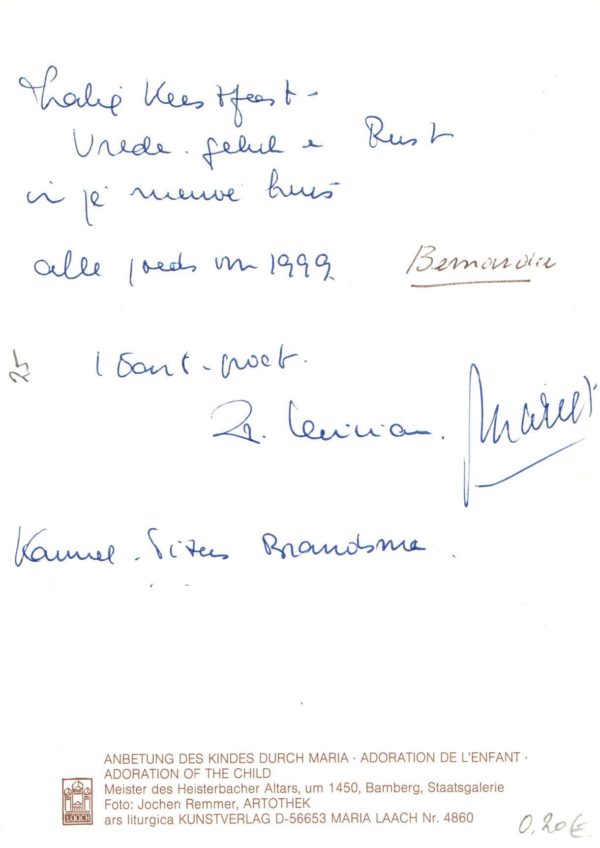 Zalig Kerstfeest -
Vrede - geluk e Rust
in je nieuwe huis
alle goeds in 1999
Bernardie
25
Zr.
Karmel. Titus Brandsma.
ANBETUNG DES KINDES DURCH MARIA · ADORATION DE L'ENFANT ·
ADORATION OF THE CHILD
Meister des Heisterbacher Altars, um 1450, Bamberg, Staatsgalerie
Foto: Jochen Remmer, ARTOTHEK
ars liturgica KUNSTVERLAG D-56653 MARIA LAACH Nr. 4860
LAACH
0,20€